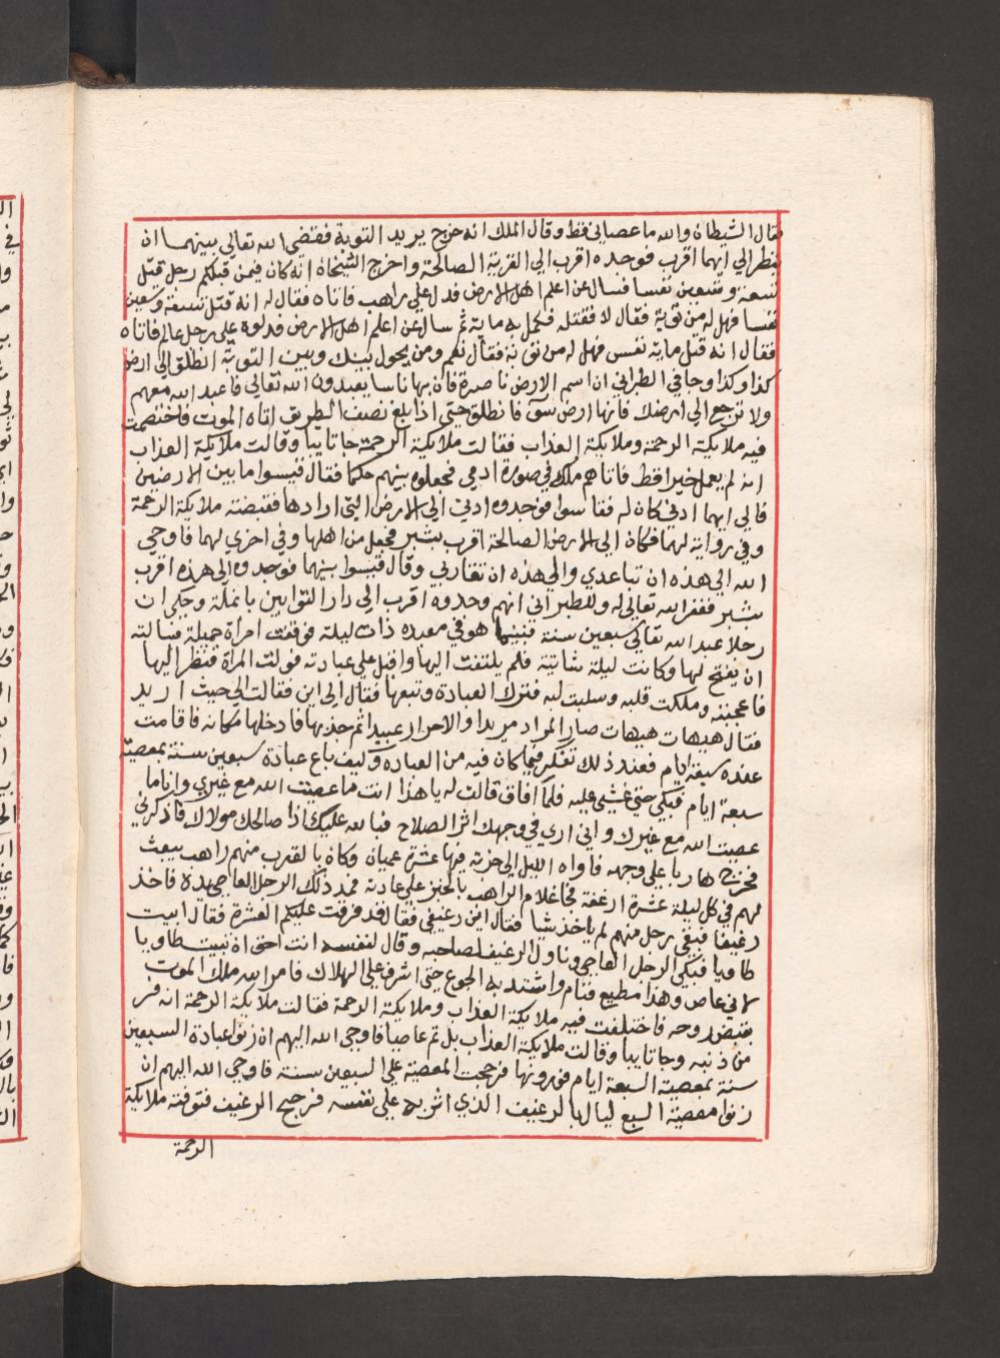 فقال الشيطان والله ما عصاني فقط وقال الملك انه خرج يريد التوبة فقضي الله تعالي بينهما ان
ينظر الي ايهما اقرب فوجده اقرب الي القرية الصالحة واخرج الشيخان انه كان فيمن قبلكم رجل قتل
تسعة وتسعين نفسا فسال عن اعلم اهل الارض فدل علي راهب فاتاه فقال له انه قتل تسعة وتسعين
نفسا فهل له من توبة فقال لا فقتله فكمل به ماية ثم سال عن اعلم اهل الارض فدلوه علي رجل عالم فاتاه
فقال انه قتل ماية نفس فهل له من توبة فقال نعم ومن يحول بينك وبين التوبة انطلق الي ارض
كذا وكذا وجا في الطبراني ان اسم الارض ناصرة فان بها ناسا يعبدون الله تعالي فاعبد الله معهم
ولا ترجع الي ارضك فانها ارض سو فانطلق حتي اذا بلغ نصف الطريق اتاه الموت فاختصمت
فيه ملايكة الرحمة وملايكة العذاب فقالت ملايكة الرحمة جا تايبا وقالت ملايكة العذاب
انه لم يعمل خيرا قط فاتاهم ملك في صورة ادمي فجعلوه بينهم حكما فقال قيسوا ما بين الارضين
فالي ايهما ادني كان له فقاسوا فوجدوه ادني الي الارض التي ارادها فقبضته ملايكة الرحمة
وفي رواية لهما فكان الي الارض الصالحة اقرب بشبر فجعل من اهلها وفي اخري لهما فاوحي
الله الي هذه ان تباعدي والي هذه ان تقاربي وقال قيسوا بينهما فوجدوه الي هذه اقرب
بشبر فغفر الله تعالي له وللطبراني انهم وجدوه اقرب الي دار التوابين بانملة وحكي ان
رجلا عبد الله تعالي سبعين سنة فبينما هو في معبده ذات ليلة فوقفت امراة جميلة فسالته
ان يفتح لها وكانت ليلة شاتية فلم يلتفت اليها واقبل علي عبادته فولت المراة فنظر اليها
فاعجبته وملكت قلبه وسلبت لبه فترك العبادة وتبعها فقال الي اين فقالت الي حيث اريد
فقال هيهات هيهات صار المراد مريدا والاحرار عبيدا ثم جذبها فادخلها مكانه فاقامت
عنده سبعة ايام فعند ذلك تفكر فيما كان فيه من العبادة وكيف باع عبادة سبعين سنة بمعصية
سبعة ايام فبكي حتي غشي عليه فلما افاق قالت له يا هذا انت ما عصيت الله مع غيري وانا ما
عصيت الله مع غيرك واني اري في وجهك اثر الصلاح فبالله عليك اذا صالحك مولاك فاذكرني
فخرج هاربا علي وجهه فاواه الليل الي خربة فيها عشرة عميان وكان بالقرب منهم راهب يبعث
لهم في كل ليلة عشرة ارغفة فجا غلام الراهب بالخبز علي عادته فمد ذلك الرجل العاصي يده فاخذ
رغيفا فبقي رجل منهم لم ياخذ شيا فقال اين رغيفي فقال قد فرقت عليكم العشرة فقال ابيت
طاويا فبكي الرجل العاصي وناول الرغيف لصاحبه وقال لنفسه انت احق ان تبيت طاويا
لاني عاص وهذا مطيع فنام واشتد به الجوع حتي اشرف علي الهلاك فامر الله ملك الموت
بقبض روحه فاختلفت فيه ملايكة العذاب وملايكة الرحمة فقالت ملايكة الرحمة انه فر
من ذنبه وجا تايبا وقالت ملايكة العذاب بل تم عاصيا فاوحي الله اليهم ان زنوا عبادة السبعين
سنة بمعصية السبعة ايام فوزنوها فرجحت المعصية علي السبعين سنة فاوحي الله اليهم ان
زنوا معصية السبع ليال بالرغيف الذي اثر به علي نفسه فرجح الرغيف فتوفته ملايكة
الرحمة